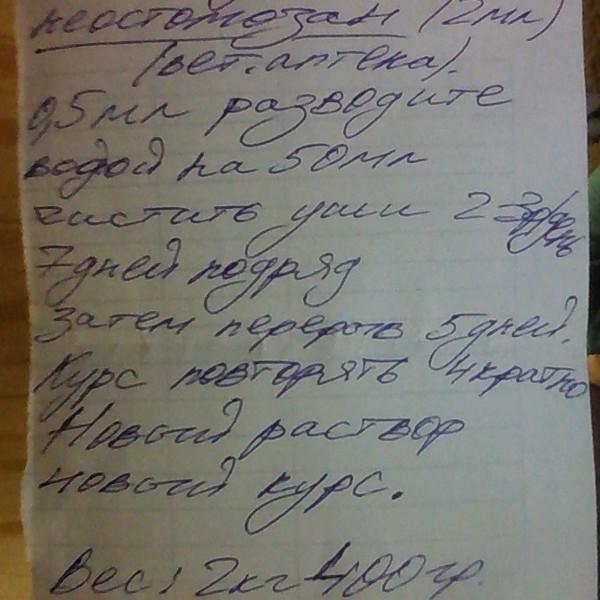 неостомозан (2мл)
(вет.аптека).
0,5мл разводите
водой на 50мл
чистить уши 2 р/день
7дней подряд
Затем перерыв 5дней.
Курс повторять 4кратно
Новый раствор
новый курс.
Вес: 2кг 400гр.